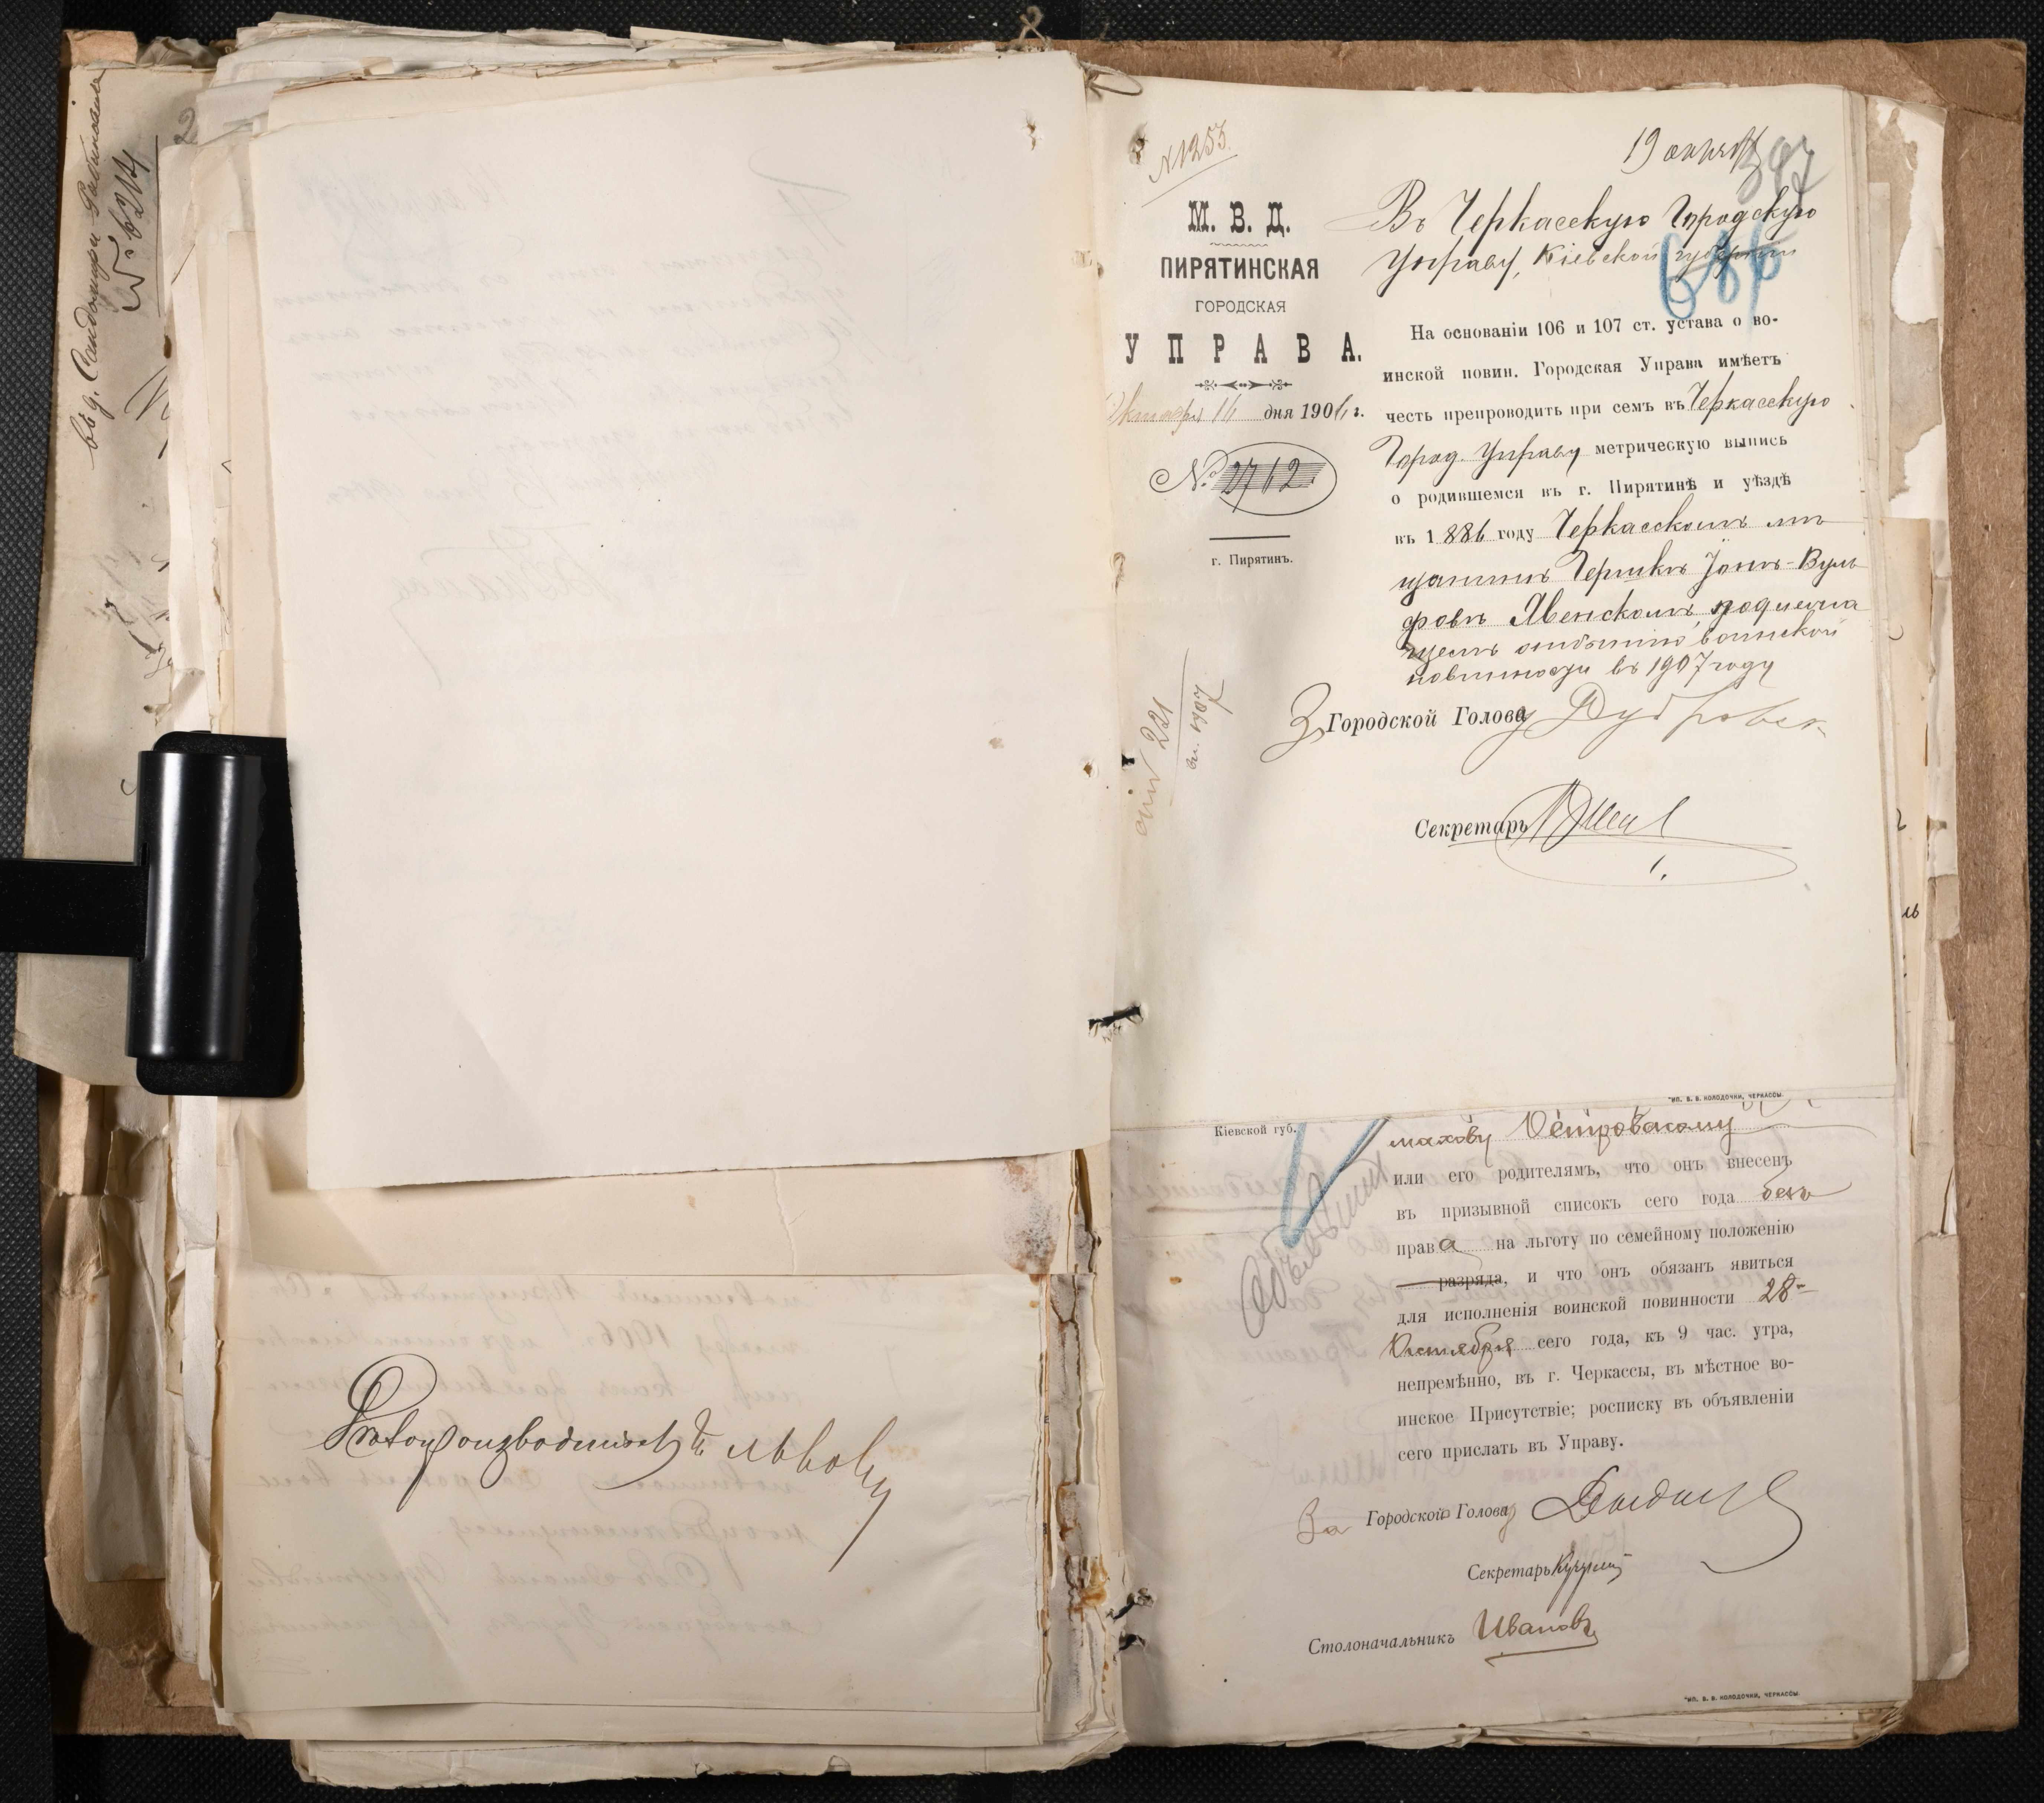 въ д. Сандомирѣ
№ 6214
№ 1253.
19
397
686
М. В. Д.
ПИРЯТИНСКАЯ
ГОРОДСКАЯ
УПРАВА.
Октября 16 дня 1906 г.
№ 2712
г. Пирятинъ.
221
1907
Въ Черкасскую Городскую
Управу, Кіевской губерніи
На основаніи 106 и 107 ст. устава о во-
инской повин. Городская Управа имѣетъ
честь препроводить при семъ въ Черкасскую
Город. Управу метрическую выпись
о родившемся въ г. Пирятинѣ и уѣздѣ
въ 1886 году Черкасскомъ мѣ
щанинѣ Гершкѣ Іонѣ-Вуль
фовѣ Явенскомъ, подлежа
щемъ отбытію воинской
повинности въ 1907 году
За Городской Голова
Секретарь
ТИП. В. В. КОЛОДОЧКИ, ЧЕРКАССЫ.
Кіевской губ.
махову Островскому
или его родителямъ, что онъ внесенъ
въ призывной списокъ сего года безъ
права на льготу по семейному положенію
разряда, и что онъ обязанъ явиться
для исполненія воинской повинности 28-
Октября сего года, къ 9 час. утра,
непремѣнно, въ г. Черкассы, въ мѣстное во-
инское Присутствіе; росписку въ объявленіи
сего прислать въ Управу.
За Городской Голова
Секретарь
Столоначальникъ Ивановъ
ТИП. В. В. КОЛОДОЧКИ, ЧЕРКАССЫ.